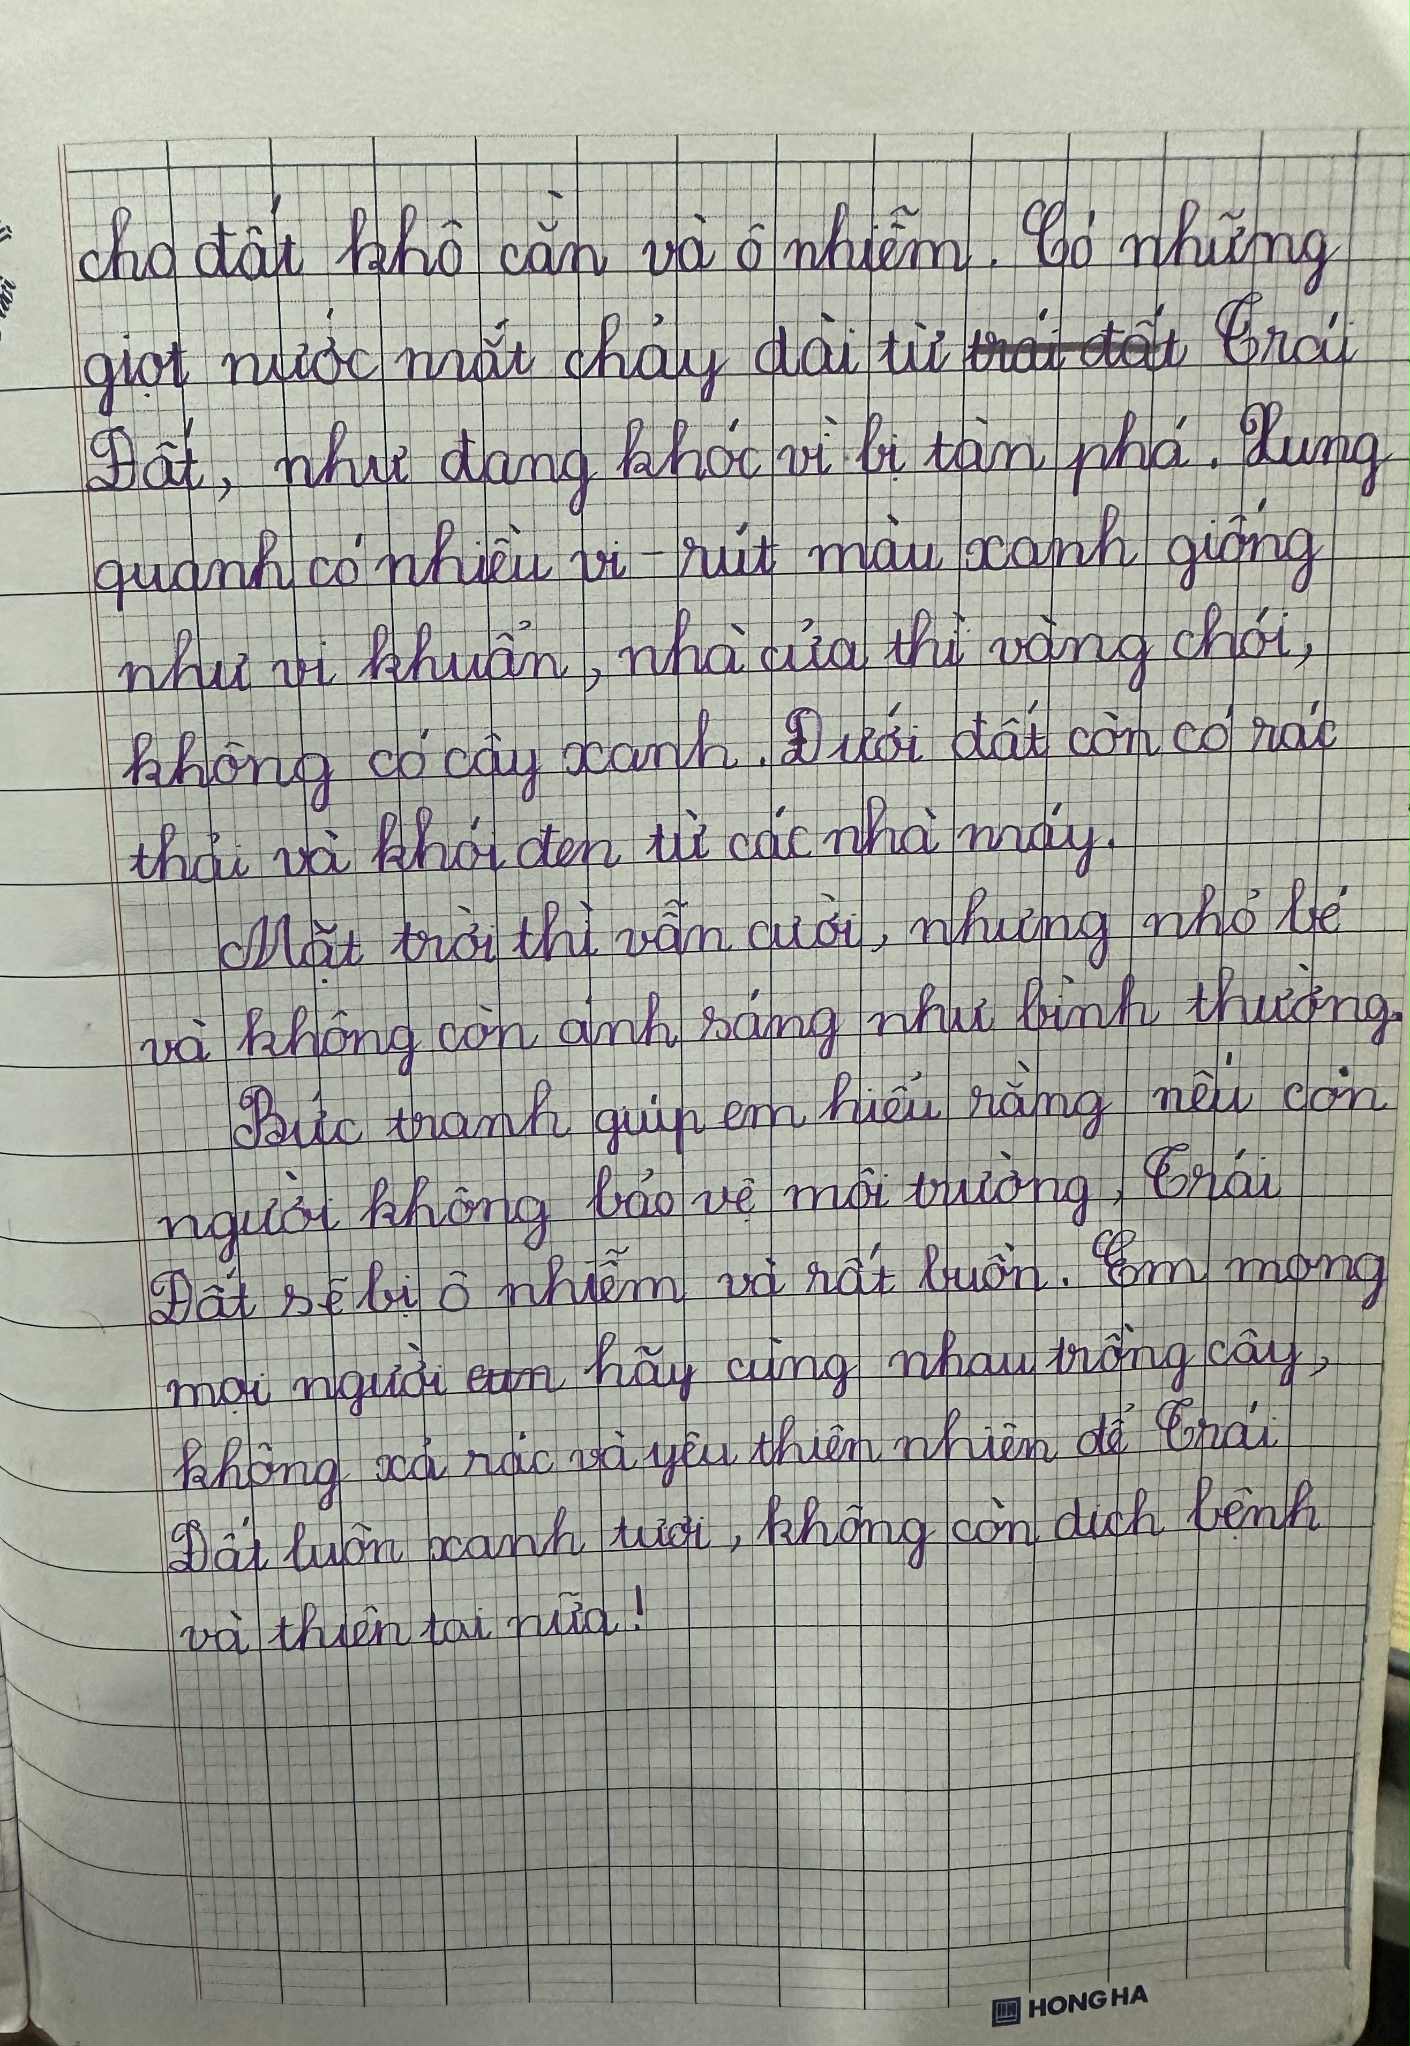 cho đất khô cằn và ô nhiễm. Có những
giọt nước mắt chảy dài từ trái đất Trái
Đất, như đang khóc vì bị tàn phá. Xung
quanh có nhiều vi-rút màu xanh giống
như vi khuẩn, nhà cửa thì vàng chói,
không có cây xanh. Dưới đất còn có rác
thải và khói đen từ các nhà máy.
Mặt trời thì vẫn cười, nhưng nhỏ bé
và không còn ánh sáng như bình thường.
Bức tranh giúp em hiểu rằng nếu con
người không bảo vệ môi trường, Trái
Đất sẽ bị ô nhiễm và rất buồn. Em mong
mọi người hãy cùng nhau trồng cây,
không xả rác và yêu thiên nhiên để Trái
Đất luôn xanh tươi, không còn dịch bệnh
và thiên tai nữa!
HONG HA